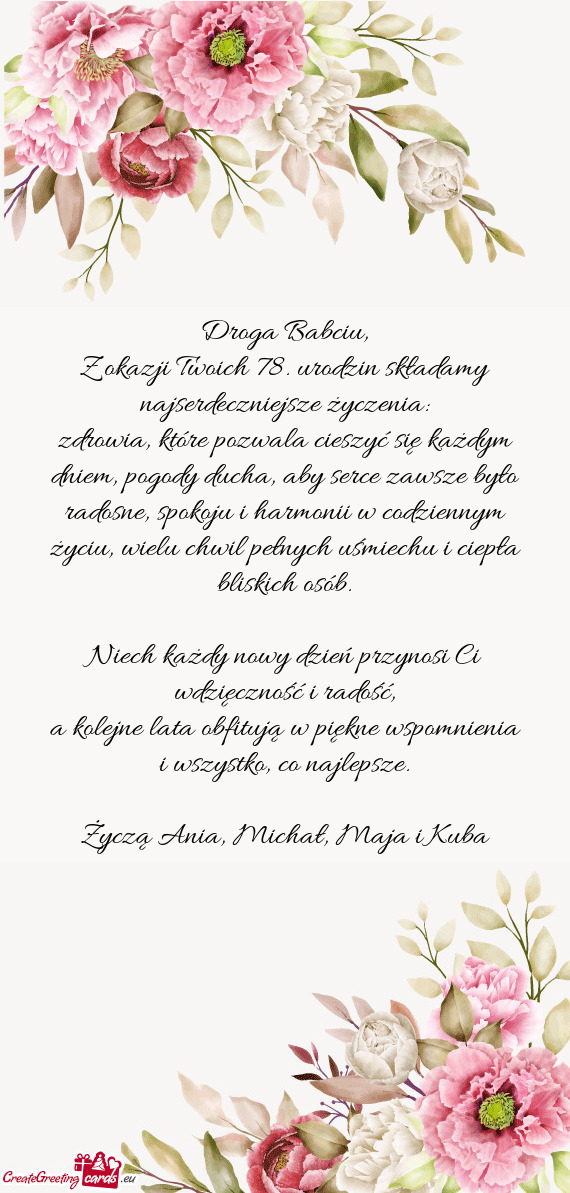 Droga Babciu,
Z okazji Twoich 78. urodzin składamy
najserdeczniejsze życzenia:
zdrowia, które pozwala cieszyć się każdym
dniem, pogody ducha, aby serce zawsze było
radosne, spokoju i harmonii w codziennym
życiu, wielu chwil pełnych uśmiechu i ciepła
bliskich osób.
Niech każdy nowy dzień przynosi Ci
wdzięczność i radość,
a kolejne lata obfitują w piękne wspomnienia
i wszystko, co najlepsze.
Życzą Ania, Michał, Maja i Kuba
CreateGreeting cards .eu